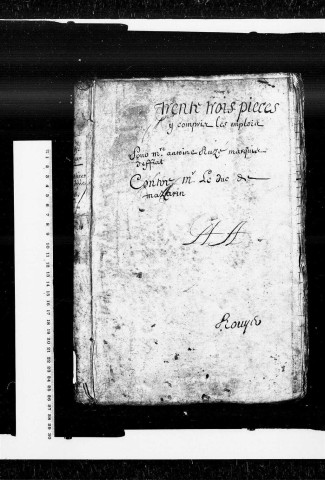 trente trois pieces
y compris les emplois
Pour mre antoine Ruzé marquis
d'effiat
Contre Mr Le duc de
mazarin
AA
Rouyer